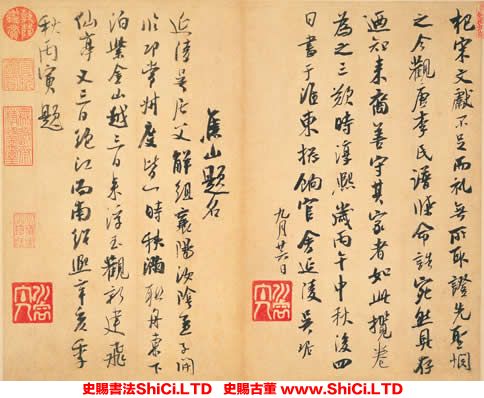 杞宋文獻不足而禮無所取證先聖惘
之今觀唐李氏譜牒命誥宛然具存
迺知來裔善守其家者如此攬卷
為之三歎時淳熙歲丙午中秋後四
日書于淮東總餉官舍延陵吳琚
九月廿六日
焦山題名
延陵吳居父解組襄陽汝陰孟子開
臨邛常州度皆一時秩滿聯舟東下
泊紫金山越三日來浮玉觀新建飛
仙亭又三日絕江而南紹熙辛亥季
秋丙寅題
史賜書法ShiCi.LTD 史賜古董 www.ShiCi.LTD